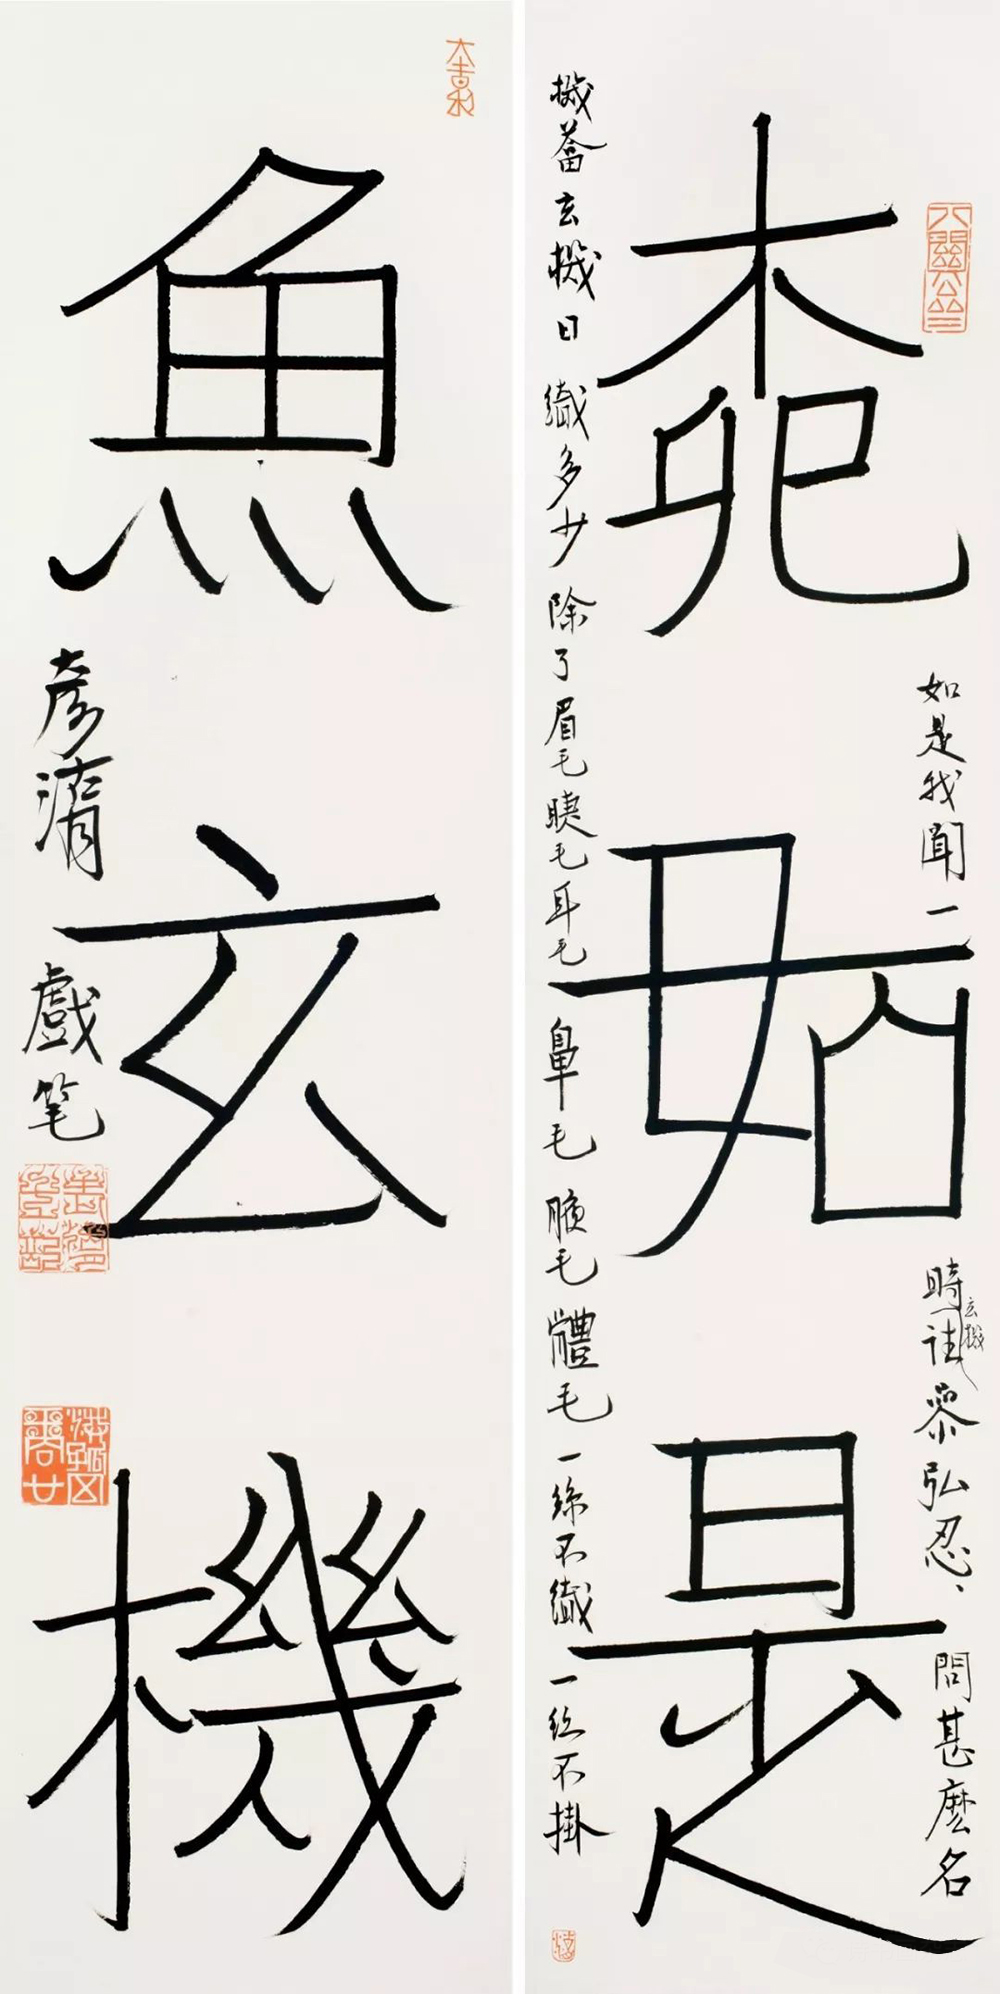 桺如是
如是我聞一時玄機往參弘忍、問甚麼名
機荅玄機曰織多少除了眉毛睫毛耳毛鼻毛腋毛體毛一絲不織一丝不掛
魚玄機
彥湑戲笔